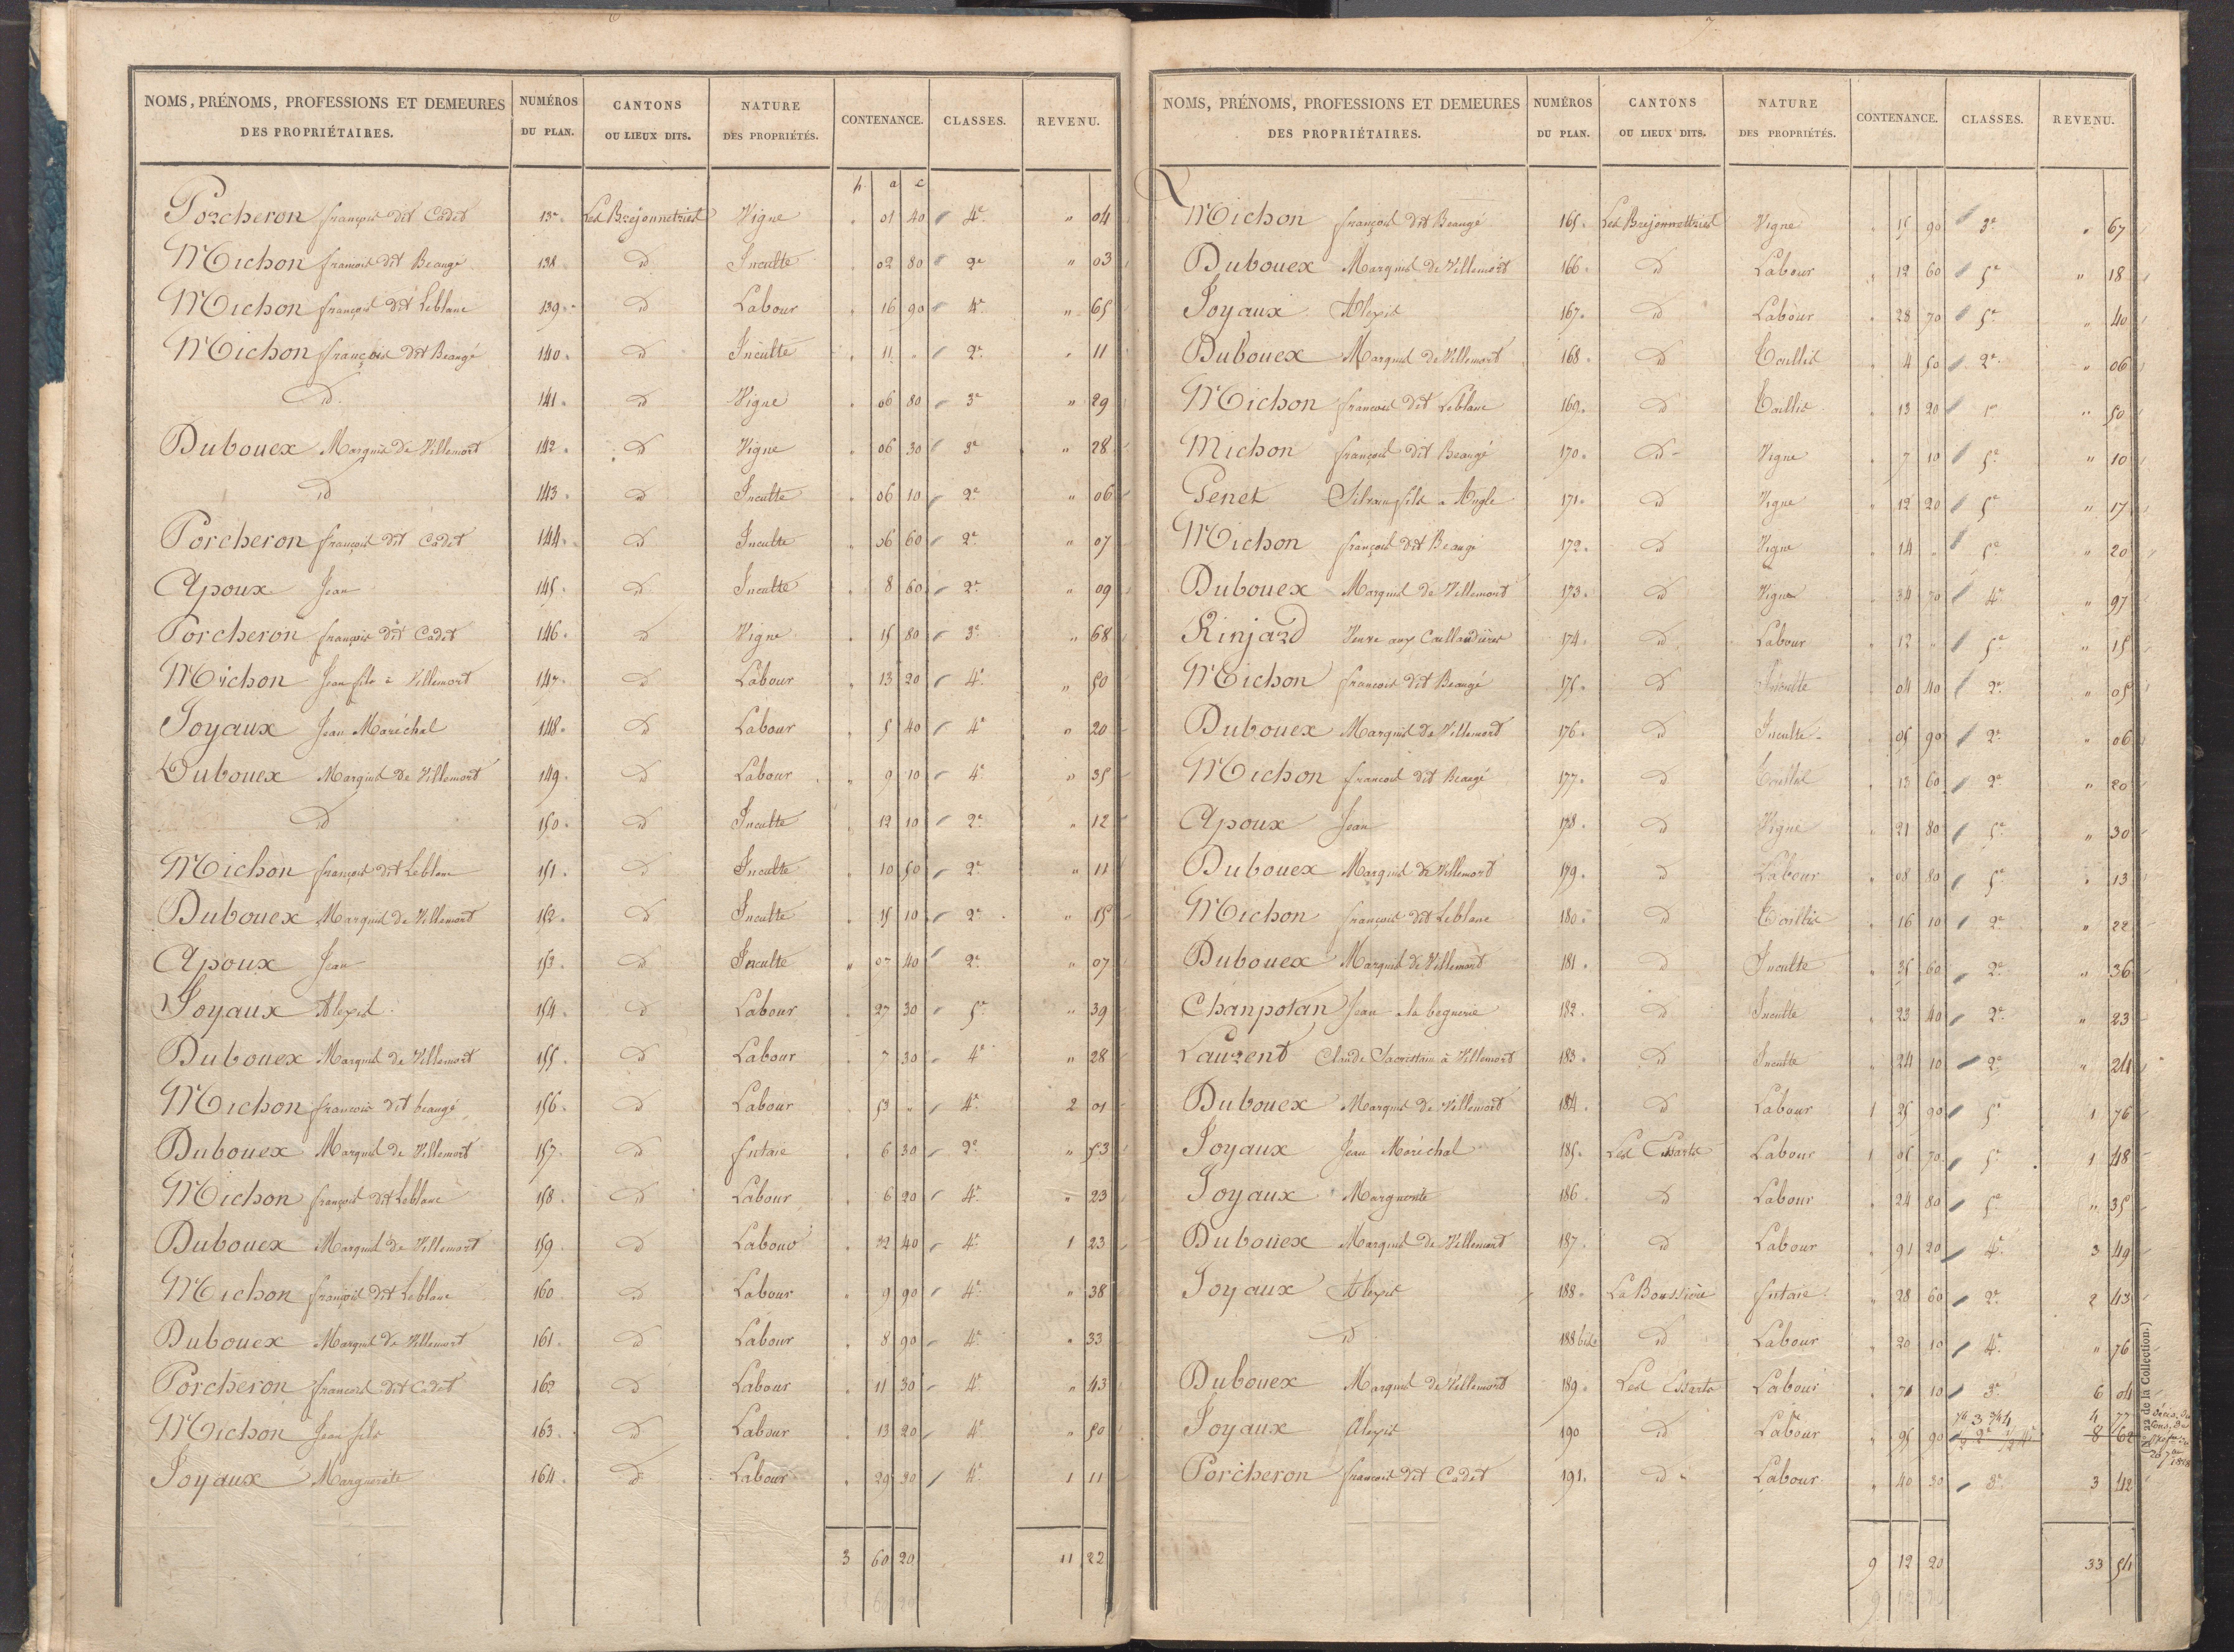 6
NOMS, PRÉNOMS, PROFESSIONS ET DEMEURES DES PROPRIÉTAIRES. | NUMÉROS DU PLAN. | CANTONS OU LIEUX DITS. | NATURE DES PROPRIÉTÉS. | CONTENANCE. | CLASSES. | REVENU.
h a c
Porcheron françois dit Cadet 137. Les Brejonnetries Vigne " 01 40 4e " 04
Michon francois dit Beaugé 138. id Inculte " 02 80 2e " 03
Michon françois dit Leblanc 139. id Labour " 16 90 4e " 65
Michon françois dit Beaugé 140. id Inculte " 11 " 2e " 11
id 141. id Vigne " 06 80 3e " 29
Dubouex Marquis de Villemort 142. id Vigne " 06 30 3e " 28
id 143. id Inculte " 06 10 2e " 06
Porcheron françois dit Cadet 144. id Inculte " 06 60 2e " 07
Apoux Jean 145. id Inculte " 8 60 2e " 09
Porcheron françois dit Cadet 146. id Vigne " 15 80 3e " 68
Michon Jean fils à Villemort 147. id Labour " 13 20 4e " 50
Joyaux Jean Maréchal 148. id Labour " 5 40 4e " 20
Dubouex Marquis de Villemort 149. id Labour " 9 10 4e " 35
id 150. id Inculte " 12 10 2e " 12
Michon françois dit Leblanc 151. id Inculte " 10 50 2e " 11
Dubouex Marquis de Villemort 152. id Inculte " 15 10 2e " 15
Apoux Jean 153. id Inculte " 07 40 2e " 07
Joyaux Alexis 154. id Labour " 27 30 5e " 39
Dubouex Marquis de Villemort 155. id Labour " 7 30 4e " 28
Michon francois dit beaugé 156. id Labour " 53 " 4e 2 01
Dubouex Marquis de Villemort 157. id futaie " 6 30 2e " 53
Michon françois dit Leblanc 158. id Labour " 6 20 4e " 23
Dubouex Marquis de Villemort 159. id Labour " 32 40 4e 1 23
Michon françois dit Leblanc 160 id Labour " 9 90 4e " 38
Dubouex Marquis de Villemort 161. id Labour " 8 90 4e " 33
Porcheron francois dit Cadet 162 id Labour " 11 30 4e " 43
Michon Jean fils 163. id Labour " 13 20 4e " 50
Joyaux Marguerite 164. id Labour " 29 20 4e 1 11
3 60 20 11 22
7
NOMS, PRÉNOMS, PROFESSIONS ET DEMEURES DES PROPRIÉTAIRES. | NUMÉROS DU PLAN. | CANTONS OU LIEUX DITS. | NATURE DES PROPRIÉTÉS. | CONTENANCE. | CLASSES. | REVENU.
Michon françois dit Beaugé 165. Les Brejonnettries Vigne " 15 90 3e " 67
Dubouex Marquis de Villemort 166. id Labour " 12 60 5e " 18
Joyaux Alexis 167. id Labour " 28 70 5e " 40
Dubouex Marquis de Villemort 168. id Taillis " 4 50 2e " 06
Michon francois dit Leblanc 169. id Taillis " 13 20 " 50
Michon françois dit Beaugé 170. id Vigne " 7 10 5e " 10
Genet Silvain fils a Angle 171. id Vigne " 12 20 5e " 17
Michon françois dit Beaugé 172. id Vigne " 14 " 5e " 20
Dubouex Marquis de Villemort 173. id Vigne " 34 70 4e " 97
Rinjard Veuve aux Caillaudières 174. id Labour " 12 " 5e " 15
Michon francois dit Beaugé 175. id Inculte " 04 40 2e " 05
Dubouex Marquis de Villemort 176. id Inculte " 05 90 2e " 06
Michon francois dit Beaugé 177. id Taillis " 13 60 2e " 20
Apoux Jean 178. id Vigne " 21 80 5e " 30
Dubouex Marquis de Villemort 179. id Labour " 08 80 5e " 13
Michon françois dit Leblanc 180. id Taillis " 16 10 2e " 22
Dubouex Marquis de Villemort 181. id Inculte " 35 60 2e " 36
Chanpotan Jean a la beguerie 182. id Inculte " 23 40 2e " 23
Laurent Claude Sacristain à Villemort 183. id Inculte " 24 10 2e " 24
Dubouex Marquis de Villemort 184. id Labour 1 25 90 5e 1 76
Joyaux Jean Maréchal 185. Les Essarts Labour 1 05 70 5e 1 48
Joyaux Marguerite 186. id Labour " 24 80 5e " 35
Dubouex Marquis de Villemort 187. id Labour " 91 20 4e 3 49
Joyaux Alexis 188. La Boussiére futaie " 28 60 2e 2 43
id 188 bis id Labour " 20 10 4e " 76
Dubouex Marquis de Villemort 189. Les Essarts Labour " 71 10 3e 6 04
1/4 3 3/4 4 4 77
Joyaux Alexis 190 id Labour " 95 90 1/2 2e 1/2 4e 8 62
Porcheron francois dit Cadet 191. id Labour " 40 30 3e 3 42
9 12 20 33 54
(No 22 de la Collection.)